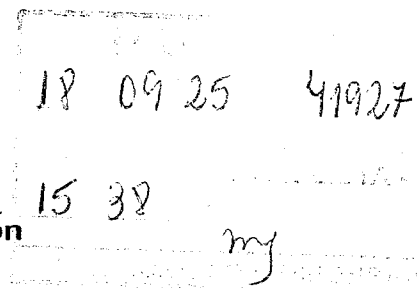 18 09 25 41927
on 15 38
my